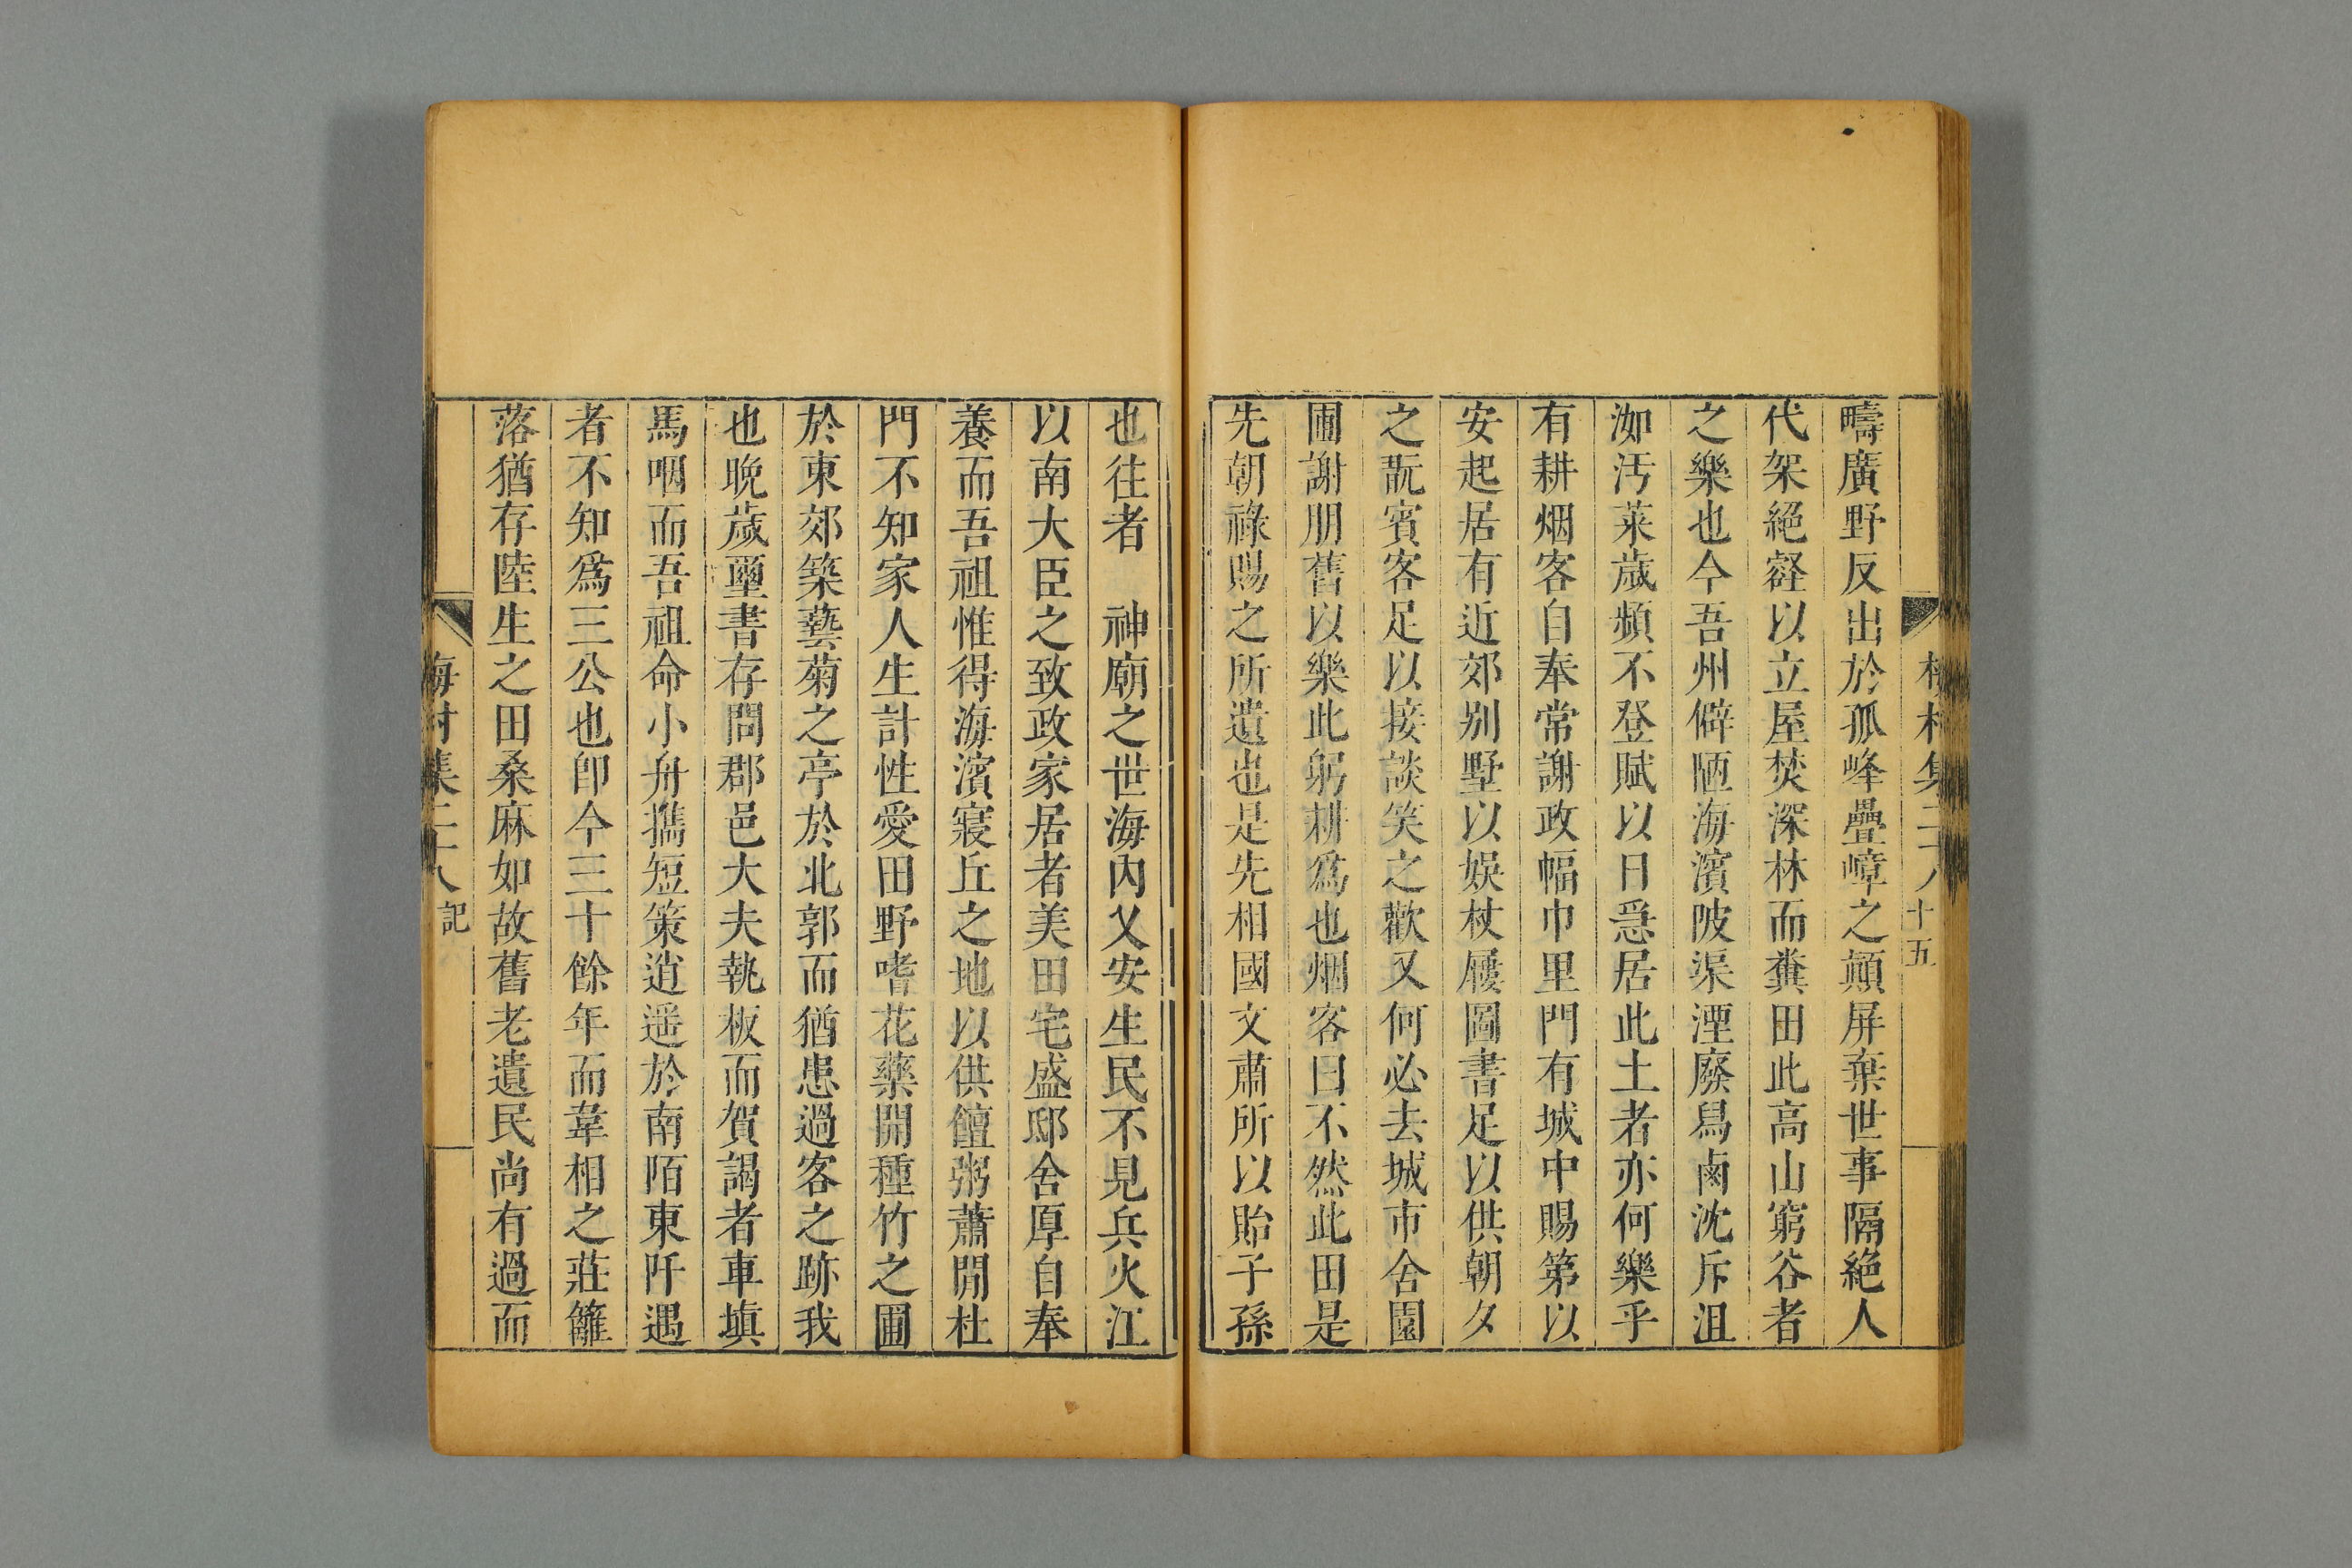 梅村集二十八 十五
疇廣野反出於孤峰疊嶂之顛屏棄世事隔絕人
代架絕壑以立屋焚深林而糞田此高山窮谷者
之樂也今吾州僻陋海濱陂渠湮廢舄鹵沈斥沮
洳汚萊歲頻不登賦以日急居此土者亦何樂乎
有耕烟客自奉常謝政幅巾里門有城中賜第以
安起居有近郊别墅以娛杖屨圖書足以供朝夕
之翫賓客足以接談笑之歡又何必去城市舍園
圃謝朋舊以樂此躬耕爲也烟客曰不然此田是
先朝祿賜之所遺也是先相國文肅所以貽子孫
也往者　神廟之世海内乂安生民不見兵火江
以南大臣之致政家居者美田宅盛邸舍厚自奉
養而吾祖惟得海濱寢丘之地以供饘粥蕭閒杜
門不知家人生計性愛田野嗜花藥開種竹之圃
於東郊築藝菊之亭於北郭而猶患過客之跡我
也晩歲璽書存問郡邑大夫執板而賀謁者車塡
馬咽而吾祖命小舟攜短策逍遥於南陌東阡遇
者不知爲三公也卽今三十餘年而韋相之莊籬
落猶存陸生之田桑麻如故舊老遺民尚有過而
梅村集二十八 記